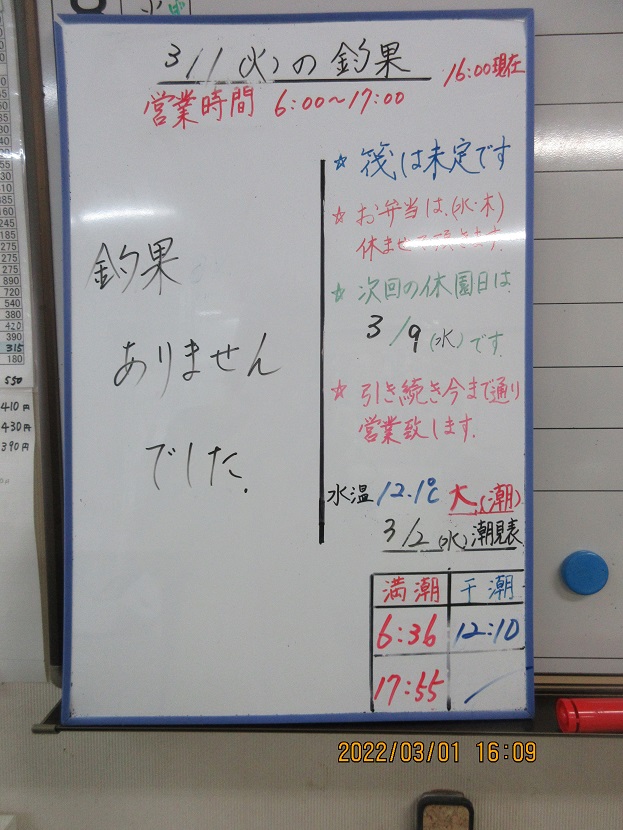 3/1(火)の釣果
16:00現在
営業時間 6:00～17:00
釣果
ありません
でした.
☆ 筏は未定です
☆ お弁当は、(水・木)
休ませて頂きます.
☆ 次回の休園日は
3/9(水)です.
☆ 引き続き今まで通り
営業致します.
水温 12.1℃ 大(潮)
3/2(水)潮見表
満潮 干潮
6:36 12:10
17:55
315
180
550
410円
430円
390円
2022/03/01 16:09